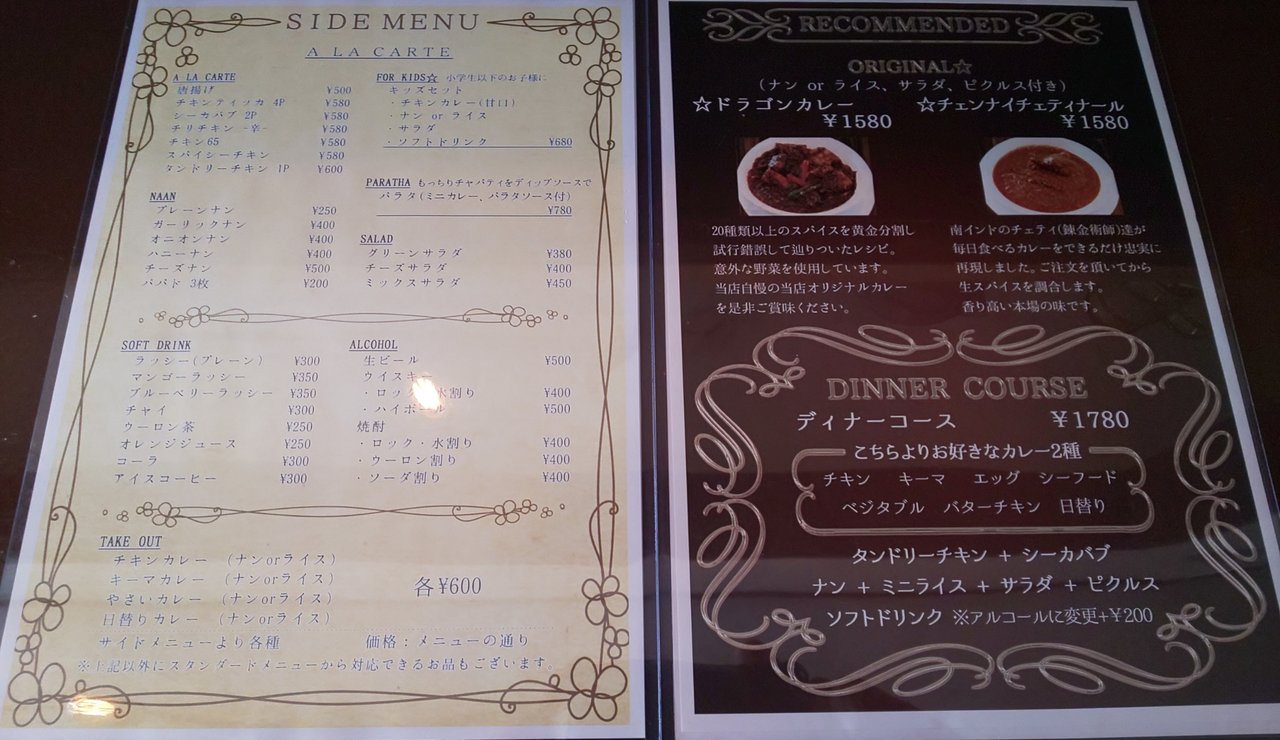 SIDE MENU
A LA CARTE
A LA CARTE
唐揚げ ¥500
チキンティッカ 4P ¥580
シーカバブ 2P ¥580
チリチキン -辛- ¥580
チキン65 ¥580
スパイシーチキン ¥580
タンドリーチキン 1P ¥600
NAAN
プレーンナン ¥250
ガーリックナン ¥400
オニオンナン ¥400
ハニーナン ¥400
チーズナン ¥500
パパド 3枚 ¥200
FOR KIDS☆ 小学生以下のお子様に
キッズセット
・チキンカレー(甘口)
・ナン or ライス
・サラダ
・ソフトドリンク ¥680
PARATHA もっちりチャパティをディップソースで
パラタ(ミニカレー、パラタソース付)
¥780
SALAD
グリーンサラダ ¥380
チーズサラダ ¥400
ミックスサラダ ¥450
SOFT DRINK
ラッシー(プレーン) ¥300
マンゴーラッシー ¥350
ブルーベリーラッシー ¥350
チャイ ¥300
ウーロン茶 ¥250
オレンジジュース ¥250
コーラ ¥300
アイスコーヒー ¥300
ALCOHOL
生ビール ¥500
ウイスキー
・ロック・水割り ¥400
・ハイボール ¥500
焼酎
・ロック・水割り ¥400
・ウーロン割り ¥400
・ソーダ割り ¥400
TAKE OUT
チキンカレー (ナンorライス)
キーマカレー (ナンorライス)
やさいカレー (ナンorライス)
日替りカレー (ナンorライス)
各¥600
サイドメニューより各種 価格:メニューの通り
※上記以外にスタンダードメニューから対応できるお品もございます。
RECOMMENDED
ORIGINAL☆
(ナン or ライス、サラダ、ピクルス付き)
☆ドラゴンカレー
¥1580
20種類以上のスパイスを黄金分割し
試行錯誤して辿りついたレシピ。
意外な野菜を使用しています。
当店自慢の当店オリジナルカレー
を是非ご賞味ください。
☆チェンナイチェティナール
¥1580
南インドのチェティ(錬金術師)達が
毎日食べるカレーをできるだけ忠実に
再現しました。ご注文を頂いてから
生スパイスを調合します。
香り高い本場の味です。
DINNER COURSE
ディナーコース ¥1780
こちらよりお好きなカレー2種
チキン キーマ エッグ シーフード
ベジタブル バターチキン 日替り
タンドリーチキン + シーカバブ
ナン + ミニライス + サラダ + ピクルス
ソフトドリンク ※アルコールに変更+¥200